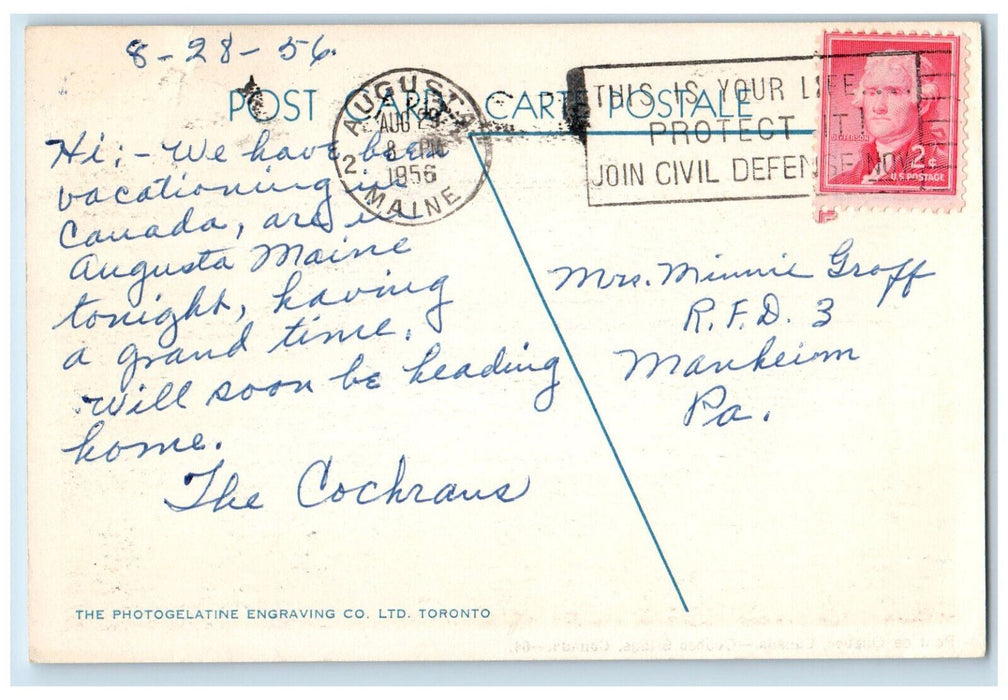 8-28-56.
POST CARD CARTE POSTALE
AUGUSTA
AUG 29
8 PM
1956
2
MAINE
THIS IS YOUR LIFE
PROTECT IT!
JOIN CIVIL DEFENSE NOW
JEFFERSON
2¢
U.S. POSTAGE
Hi:- We have been
vacationing in
Canada, are in
Augusta Maine
tonight, having
a grand time.
Will soon be heading
home.
The Cochrans
Mrs. Minnie Groff
R.F.D. 3
Manheim
Pa.
THE PHOTOGELATINE ENGRAVING CO. LTD. TORONTO